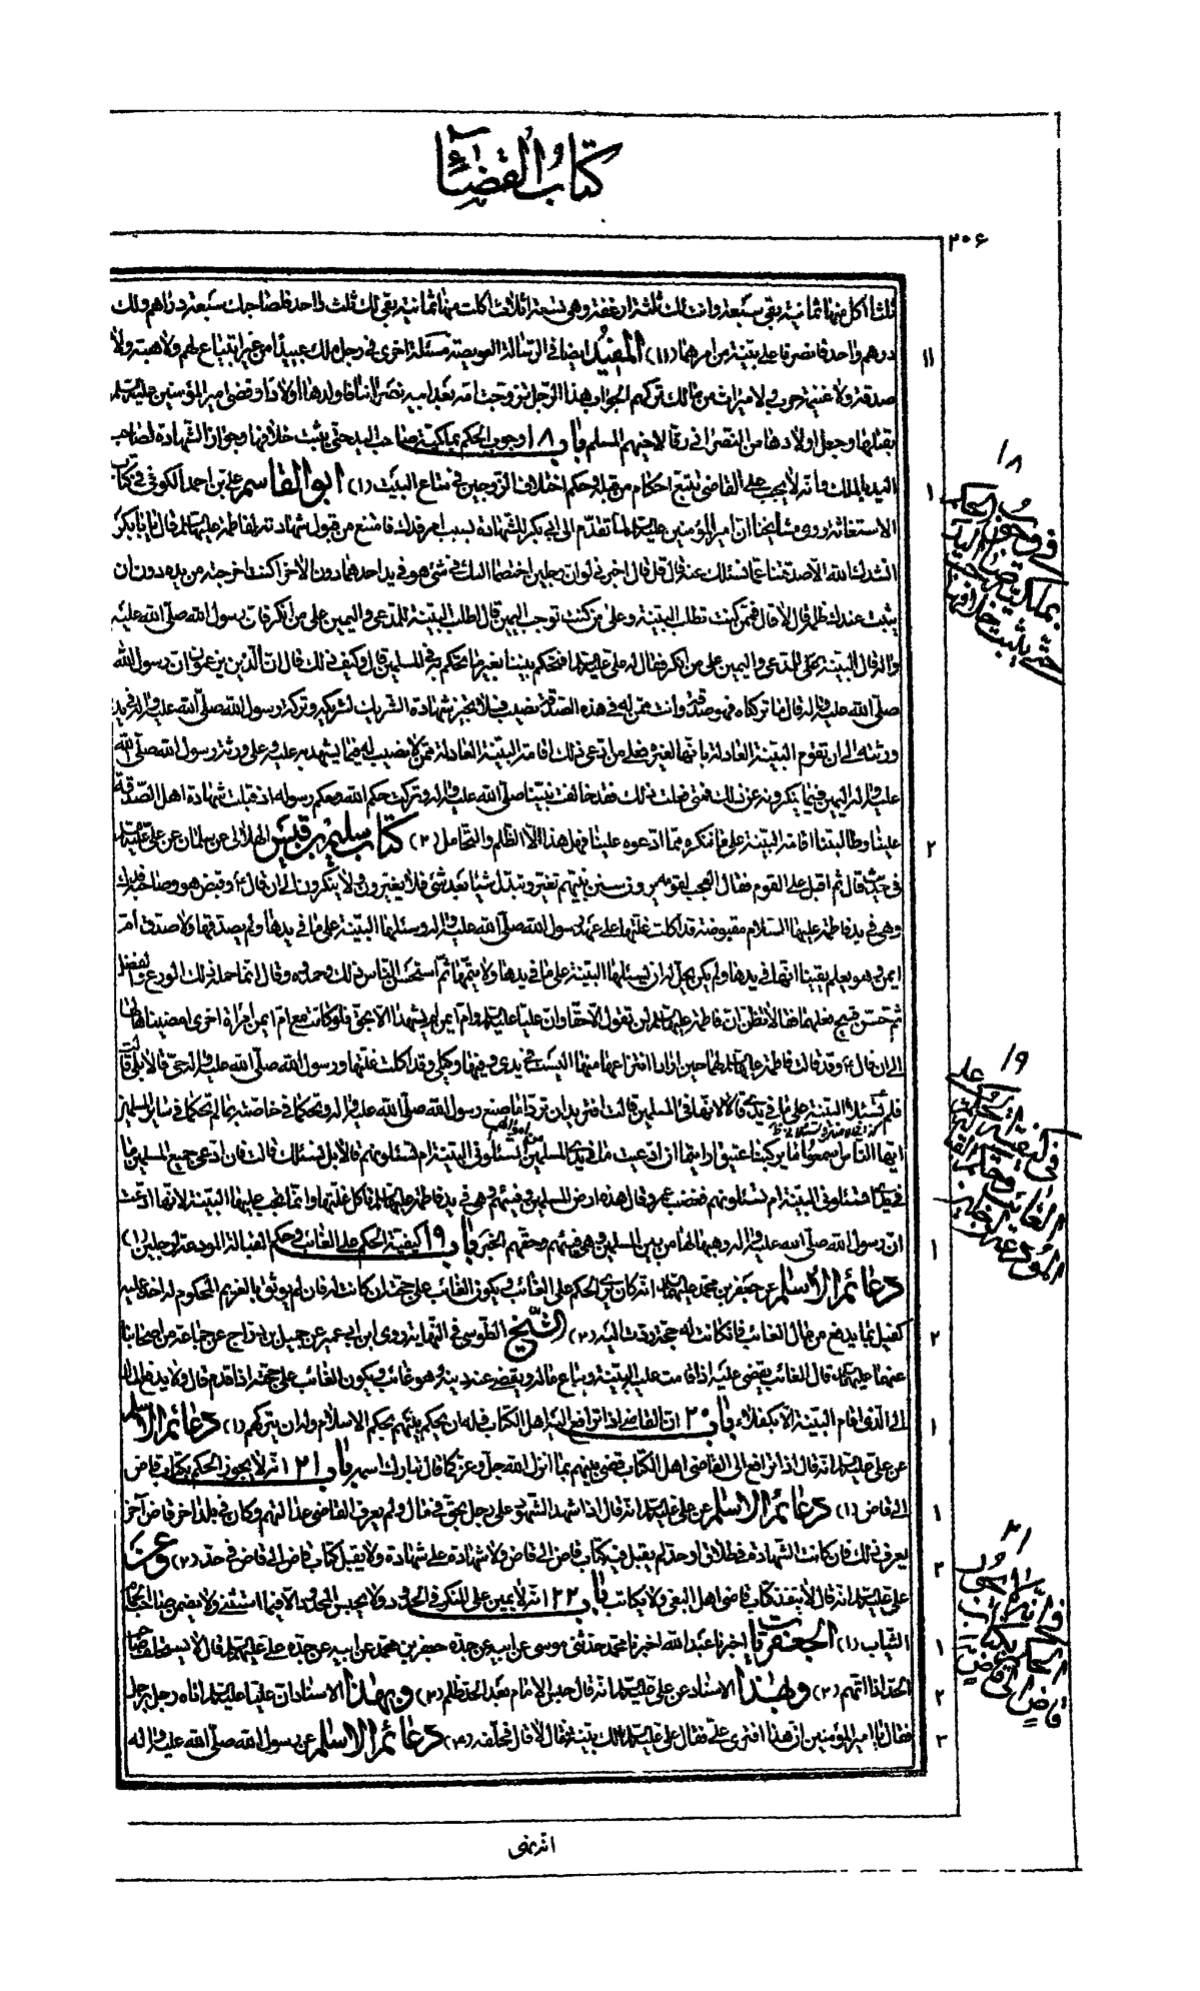 كتاب القضاء
٢٠۶
ثلثا اكل منها ثمانية بقى سبعة وانت لك ثلثة ارغفة وهى تسعة اثلاث اكلت منها ثمانية بقى لك ثلث واحد فلصاحبك سبعة دراهم ولك
درهم واحد فانصرفا على بينة من امرهما (١١) المفيد ايضا فى الرسالة العويصة مسئلة اخرى فى رجل ملك عبيدا من غير ابتياع لهم ولا هبة ولا
صدقة ولا غنيمة حرب ولا ميراث من مالك تركهم الجواب هذا الرجل تزوجت امه بعد ابيه نصرانيا فاولدها اولادا وقضى امير المؤمنين عليه السلم
بقتلها وجعل اولادها من النصرانى رقا لاخيهم المسلم باب ١٨ وجوب الحكم بملكية صاحب اليد حتى يثبت خلافها وجواز الشهادة لصاحب
اليد بالملك وانه لا يجب على القاضى تتبع احكام من قبله وحكم اختلاف الزوجين فى متاع البيت (١) ابو القاسم على بن احمد الكوفى فى كتاب
الاستغاثة روى مشايخنا ان امير المؤمنين عليه السلم لما تقدم الى ابى بكر للشهادة لسبب امر فدك فامتنع من قبول شهادته لفاطمة عليها السلم قال يا ابا بكر
انشدك بالله الا صدقتنا عما نسئلك عنه قال قل قال اخبرنى لو ان رجلين اختصما اليك فى شئ هو فى يد احدهما دون الاخر اكنت اخرجته من يده دون ان
يثبت عندك ظلمه قال لا قال فممن كنت تطلب البينة وعلى من كنت توجب اليمين قال اطلب البينة للمدعى واليمين على من انكر فان رسول الله صلى الله عليه
واله قال البينة على المدعى واليمين على من انكر فقال له على عليه السلم افتحكم بيننا بغير ما تحكم به فى المسلمين قال وكيف ذلك قال ان الذين يزعمون ان رسول الله
صلى الله عليه واله قال ما تركناه فهو صدقة وانت ممن له فى هذه الصدقة نصيب فلا تجيز شهادة الشريك لشريكه وتركة رسول الله صلى الله عليه واله فى يد
ورثته الى ان تقوم البينة العادلة بانها لغيره فعلى من ادعى ذلك اقامة البينة العادلة ممن لا نصيب له فيما يشهد به عليه وعلى ورثة رسول الله صلى الله
عليه واله اليمين فيما ينكرونه عن ذلك فمتى فعلت ذلك فقد خالفت نبينا صلى الله عليه واله وتركت حكم الله وحكم رسوله اذ قبلت شهادة اهل الصدقة
علينا وطالبتنا اقامة البينة على ما ننكره مما ادعوه علينا فهل هذا الا الظلم والتحامل (٢) كتاب سليم بن قيس الهلالى عن سلمان عن على عليه السلم
فى حديث قال ثم اقبل على القوم فقال العجب لقوم يرون سنن نبيهم تغير وتبدل شيئا بعد شئ فلا يغيرون ولا ينكرون الى ان قال ع وقبض هو وصاحبه فدك
وهى فى يد فاطمة عليها السلام مقبوضة قد اكلت غلتها على عهد رسول الله صلى الله عليه واله وسئلها البينة على ما فى يدها ولم يصدقها ولا صدق ام
ايمن وهو يعلم يقينا انها فى يدها ولم يكن يحل له ان يسئلها البينة على ما فى يدها ولا يتهمها ثم استحسن الناس ذلك وحمدوه وقال انما حمله ذلك الورع والفضل
الى ان قال ع وقد قالت فاطمة عليها السلم لهما حين ارادا انتزاعها منها اليست فى يدى وفيها وكيلى وقد اكلت غلتها ورسول الله صلى الله عليه واله حى قالا بلى قالت
فلم تسئلا البينة على ما فى يدى قالا لانها فئ المسلمين قالت افتريدان تردا ما صنع رسول الله صلى الله عليه واله وتحكما فى خاصة بما لم تحكما فى سائر المسلمين
ايها الناس اسمعوا ما ركب عتيق ارايتما ان ادعيت ما فى يد المسلمين اتسئلونى البينة ام تسئلونهم قالا بل نسئلك قالت فان ادعى جميع المسلمين ما
فى يدى اتسئلونى البينة ام تسئلونهم فغضب عمر وقال هذه ارض المسلمين وفيئهم وهى فى يد فاطمة عليها السلم تاكل غلتها وانما يجب عليها البينة لانها ادعت
ان رسول الله صلى الله عليه واله وهبها لها من بين المسلمين وهى فيئهم وحقهم الخبر باب ١٩ كيفية الحكم على الغائب وحكم القبالة المودعة لرجلين (١)
دعائم الاسلم عن جعفر بن محمد عليهما السلم انه كان يرى الحكم على الغائب ويكون الغائب على حجته ان كانت له فان لم يوثق بالغريم المحكوم له اخذ عليه
كفيل بما يدفع من مال الغائب فان كانت له حجة ردت اليه (٢) الشيخ الطوسى فى النهاية روى ابن ابى عمير عن جميل بن دراج عن جماعة من اصحابنا
عنهما عليهما السلم قال الغائب يقضى عليه اذا قامت عليه البينة ويباع ماله ويقضى عنه دينه وهو غائب ويكون الغائب على حجته اذا قدم قال ولا يدفع المال
الى الذى اقام البينة الا بكفلاء باب ٢٠ ان القاضى اذا ترافع اليه اهل الكتاب فله ان يحكم بينهم بحكم الاسلام وله ان يتركهم (١) دعائم الاسلم
عن على عليه السلم انه قال اذا ترافع الى القاضى اهل الكتاب قضى بينهم بما انزل الله جل وعز كما قال تبارك اسمه باب ٢١ انه لا يجوز الحكم بكتاب قاض
الى قاض (١) دعائم الاسلم عن على عليه السلم انه قال اذا شهد الشهود على رجل بحق فى مال ولم يعرف القاضى عدالتهم وكان فى بلد اخر قاض آخر
يعرف ذلك فان كانت الشهادة فى طلاق او حد لم يقبل فيه كتاب قاض الى قاض ولا شهادة على شهادة ولا يقبل كتاب قاض الى قاض فى حد (٢) وعن
على عليه السلم انه قال لا ينفذ كتاب قاضى اهل البغى ولا يكاتب باب ٢٢ انه لا يمين على المنكر فى الحدود ولا يحبس المحدود الا فيما استثنى ولا يضمن صاحب الحمام
الثياب (١) الجعفريات اخبرنا عبد الله اخبرنا محمد حدثنى موسى عن ابيه عن جده جعفر بن محمد عن ابيه عن جده على عليه السلم قال لا يستحلف صاحب
الحد اذا اتهم (٢) وبهذا الاسناد عن على عليه السلم انه قال حبس الامام بعد الحد ظلم (٣) وبهذا الاسناد ان عليا عليه السلم اتاه رجل برجل
فقال يا امير المؤمنين ان هذا افترى على فقال على عليه السلم الك بينة فقال لا قال فحلفه (٣) دعائم الاسلم عن رسول الله صلى الله عليه واله
انه نهى
١١
١
٢
١
٢
١
١
٢
١
٢
٣
١٨
فى وجوب الحكم
بملكية صاحب اليد
حتى يثبت خلافها
١٩
فى كيفية الحكم على
الغائب وحكم القبالة
المودعة لرجلين
٢١
فى انه لا يجوز
الحكم بكتاب
قاض الى قاض